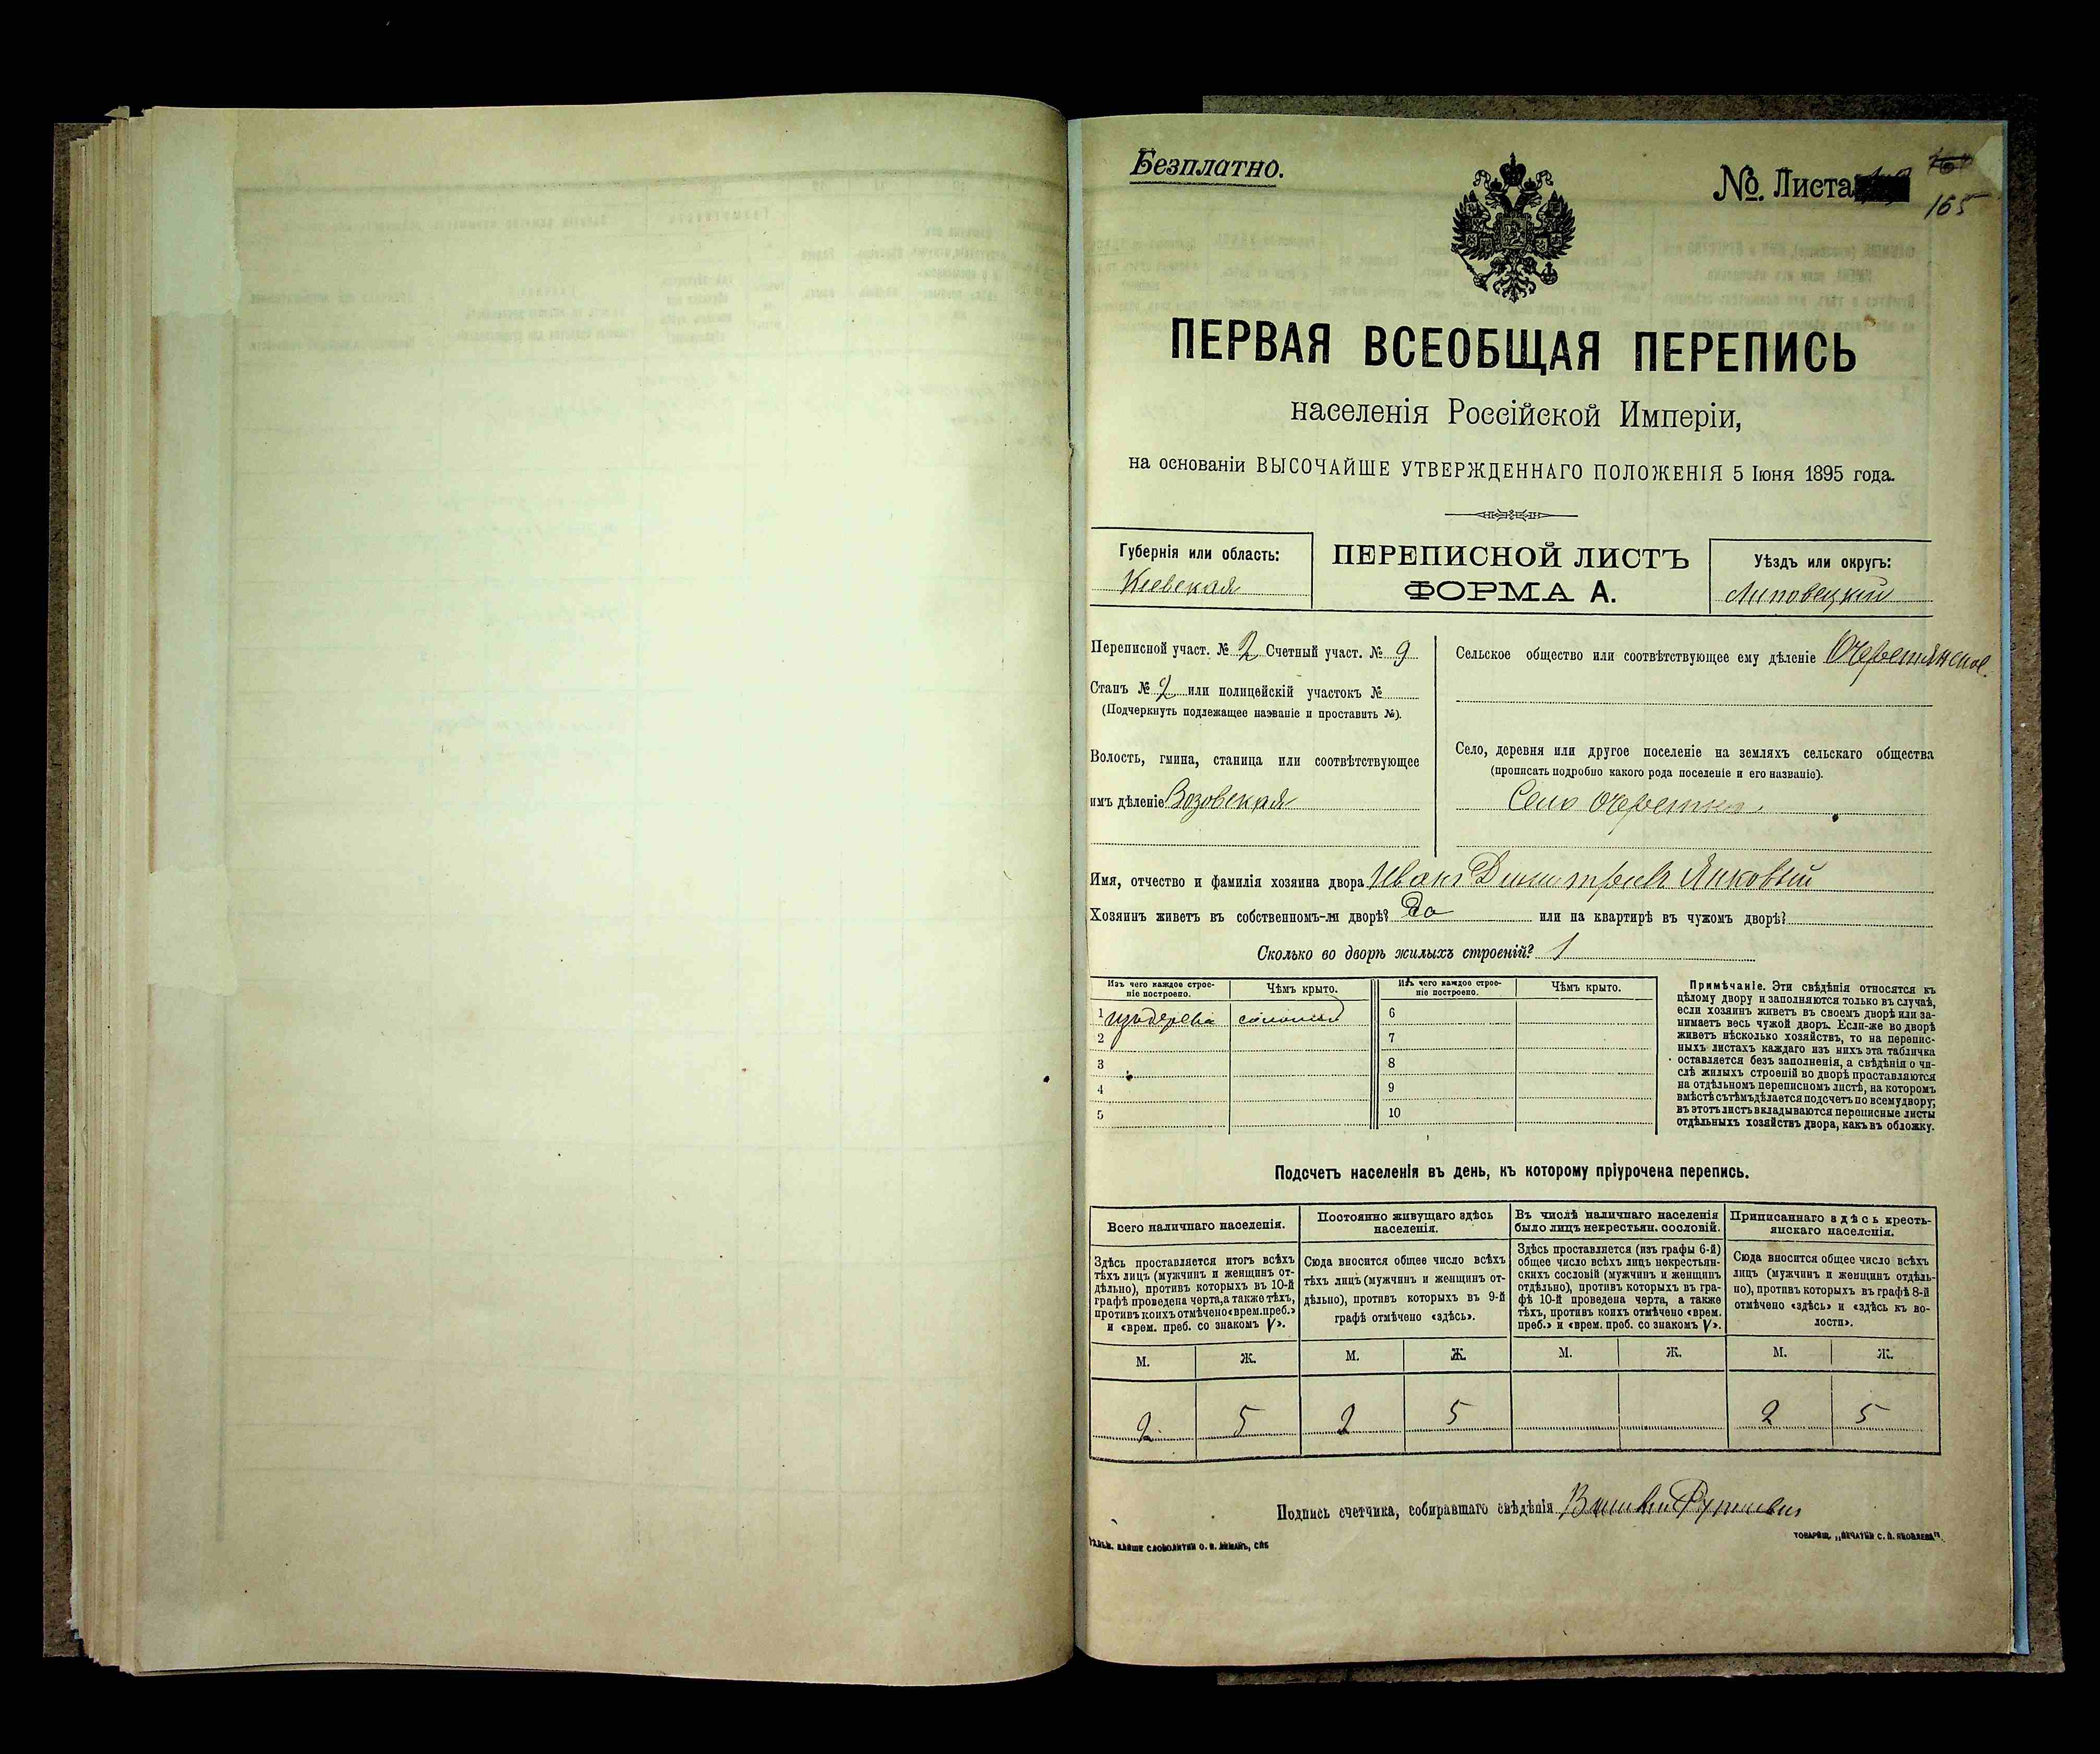 Безплатно.
№. Листа
165
ПЕРВАЯ ВСЕОБЩАЯ ПЕРЕПИСЬ
населенія Россійской Имперіи,
на основаніи ВЫСОЧАЙШЕ УТВЕРЖДЕННАГО ПОЛОЖЕНІЯ 5 Іюня 1895 года.
Губернія или область:
Кіевская
ПЕРЕПИСНОЙ ЛИСТЪ
ФОРМА А.
Уѣздъ или округъ:
Липовецкій
Переписной участ. № 2 Счетный участ. № 9
Станъ № 2 или полицейскій участокъ №
(Подчеркнуть подлежащее названіе и проставить №).
Волость, гмина, станица или соотвѣтствующее
имъ дѣленіе Возовская
Сельское общество или соотвѣтствующее ему дѣленіе Очеретянское.
Село, деревня или другое поселеніе на земляхъ сельскаго общества
(прописать подробно какого рода поселеніе и его названіе).
Село Очеретня.
Имя, отчество и фамилія хозяина двора Иванъ Димитріевъ Янковый
Хозяинъ живетъ въ собственномъ-ли дворѣ? Да или на квартирѣ въ чужомъ дворѣ?
Сколько во дворѣ жилыхъ строеній? 1
Изъ чего каждое строеніе построено. Чѣмъ крыто. Изъ чего каждое строеніе построено. Чѣмъ крыто.
1 изъ дерева соломой 6
2 7
3 8
4 9
5 10
Примѣчаніе. Эти свѣдѣнія относятся къ
цѣлому двору и заполняются только въ случаѣ,
если хозяинъ живетъ въ своемъ дворѣ или за-
нимаетъ весь чужой дворъ. Если-же во дворѣ
живетъ нѣсколько хозяйствъ, то на перепис-
ныхъ листахъ каждаго изъ нихъ эта табличка
оставляется безъ заполненія, а свѣдѣнія о чи-
слѣ жилыхъ строеній во дворѣ проставляются
на отдѣльномъ переписномъ листѣ, на которомъ
вмѣстѣ съ тѣмъ дѣлается подсчетъ по всему двору;
въ этотъ листъ вкладываются переписные листы
отдѣльныхъ хозяйствъ двора, какъ въ обложку.
Подсчетъ населенія въ день, къ которому пріурочена перепись.
Всего наличнаго населенія.
Здѣсь проставляется итогъ всѣхъ
тѣхъ лицъ (мужчинъ и женщинъ от-
дѣльно), противъ которыхъ въ 10-й
графѣ проведена черта, а также тѣхъ,
противъ коихъ отмѣчено «врем. преб.»
и «врем. преб. со знакомъ V».
Постоянно живущаго здѣсь
населенія.
Сюда вносится общее число всѣхъ
тѣхъ лицъ (мужчинъ и женщинъ от-
дѣльно), противъ которыхъ въ 9-й
графѣ отмѣчено «здѣсь».
Въ числѣ наличнаго населенія
было лицъ некрестьян. сословій.
Здѣсь проставляется (изъ графы 6-й)
общее число всѣхъ лицъ некрестьян-
скихъ сословій (мужчинъ и женщинъ
отдѣльно), противъ которыхъ въ гра-
фѣ 10-й проведена черта, а также
тѣхъ, противъ коихъ отмѣчено «врем.
преб.» и «врем. преб. со знакомъ V».
Приписаннаго здѣсь кресть-
янскаго населенія.
Сюда вносится общее число всѣхъ
лицъ (мужчинъ и женщинъ отдѣль-
но), противъ которыхъ въ графѣ 8-й
отмѣчено «здѣсь» и «здѣсь къ во-
лости».
М. Ж. М. Ж. М. Ж. М. Ж.
2 5 2 5 2 5
Подпись счетчика, собиравшаго свѣдѣнія
ТОВАРИЩ. „ПЕЧАТНИ С. П. ЯКОВЛЕВА“.